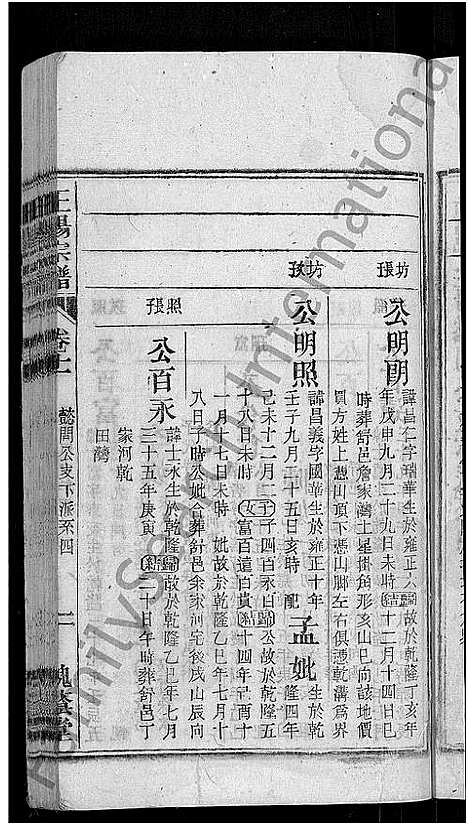 坊張
公明
諱昌仁字瑞華生於雍正六
年戊申九月二十九日未時
故於乾隆丁亥年
十二月十四日巳
時葬舒邑詹家灣土星掛角形亥山巳向該地價
買方姓上憑山頂下憑山腳左右俱憑乾溝為界
坊張
公明照
諱昌義字國華生於雍正十年
壬子九月二十五日亥時
配
孟妣
生於乾隆四年
己未十二月二十八日未時
子四百永百
女
富百遠百貴
公故於乾隆五十四年己酉十
一月初七日未時
妣故於乾隆乙巳年七月十
八日子時公妣合葬舒邑余家河宅後戌山辰向
照張
公百永
諱士永生於乾隆
三十五年庚寅
故於乾隆乙巳年七月
二十日午時葬舒邑丁
家河乾
田灣
王楊宗譜
卷十一
懿問公支下派系四
二
槐蔭堂
FamilySearch International